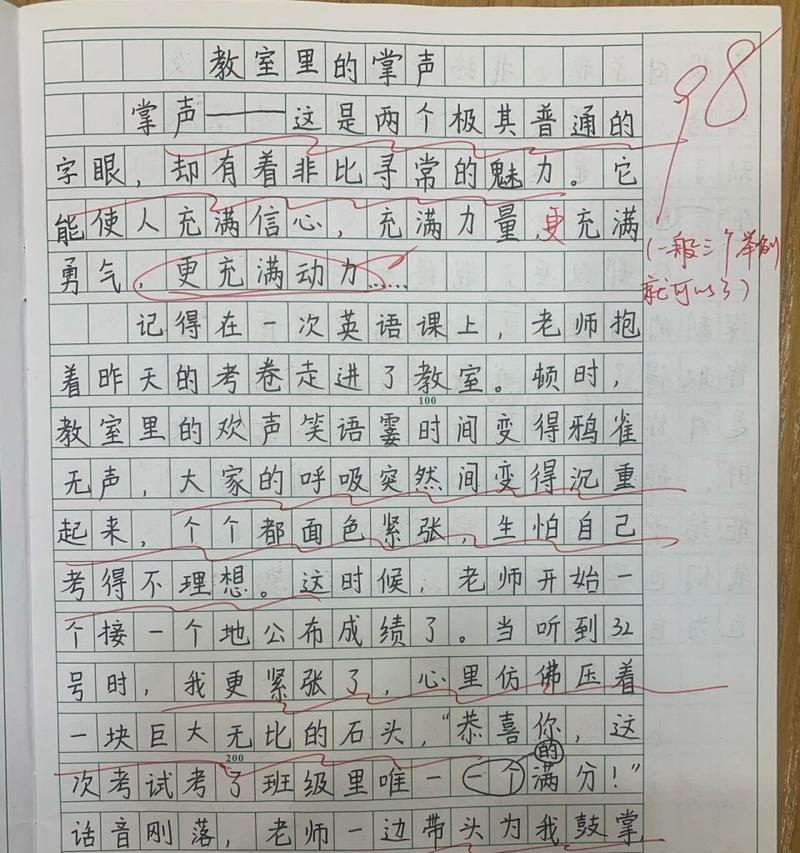 教室里的掌声
98
掌声——这是两个极其普通的
字眼，却有着非比寻常的魅力。它
能使人充满信心，充满力量，更充满
勇气，更充满动力……
(一般三个举例
就可以了)
记得在一次英语课上，老师抱
着昨天的考卷走进了教室。顿时，
100
教室里的欢声笑语霎时间变得鸦雀
无声，大家的呼吸突然间变得沉重
起来，个个都面色紧张，生怕自己
考得不理想。这时候，老师开始一
个接一个地公布成绩了。当听到32
号时，我更紧张了，心里仿佛压着
一块巨大无比的石头，“恭喜你，这
的
200
次考试考了班级里唯一一个满分！”
话音刚落，老师一边带头为我鼓掌，